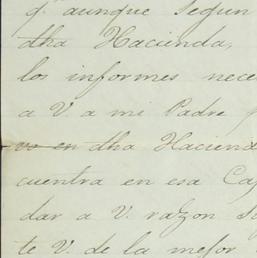 q.e aunque segun
dha Hacienda,
los informes nece
a V. a mi Padre
en dha Haciend
cuentra en esa Ca
dar a V. razon su
te V. de la mejor